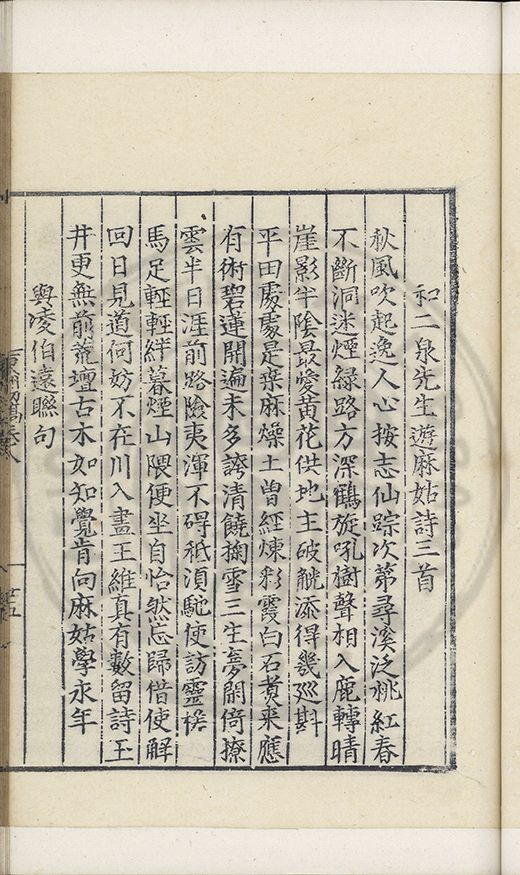 和二泉先生遊麻姑詩三首
秋風吹起逸人心按志仙踪次第尋溪泛桃紅春
不斷洞迷煙綠路方深鶴旋吼樹聲相入鹿轉晴
崖影半陰最愛黃花供地主破觥添得幾巡斟
平田處處是桒麻燥土曾經煉彩霞白石煑來應
有術碧蓮開遍未多誇清饒掬雪三生夢閙倚撩
雲半日涯前路險夷渾不碍秪湏馳使訪靈槎
馬足輕輕絆暮煙山隈便坐自怡然忘歸借使觧
回日見道何妨不在川入畫王維真有數留詩玉
井更無前荒壇古木如知覺肯向麻姑學永年
與凌伯遠聯句